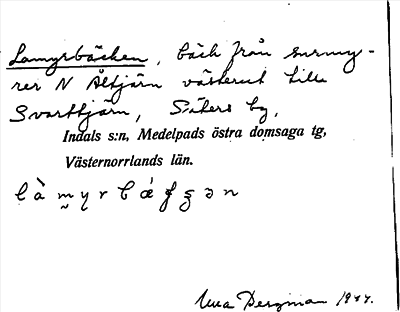 Lamyrbäcken, bäck från surmy-
rer N Åltjärn västerut till
Svarttjärn, Säters by,
Indals s:n, Medelpads östra domsaga tg,
Västernorrlands län.
Bergman 1944.